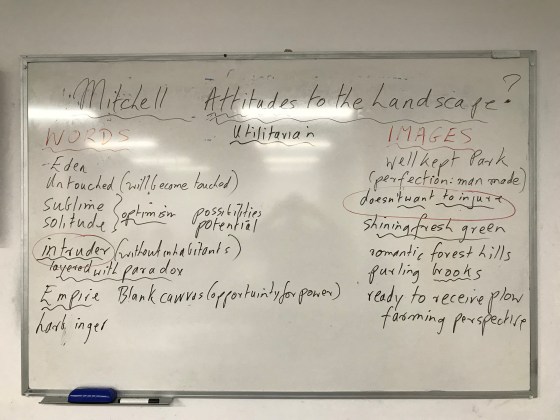 Mitchell Attitudes to the Landscape?
WORDS
Utilitarian
Eden
Untouched (will become touched)
Sublime
solitude } optimism possibilities
potential
intruder (without inhabitants)
layered with parador
Empire Blank canvas (opportunity for power)
harbinger
IMAGES
well kept Park
(perfection: man made)
doesn't want to injure
shining fresh green
romantic forest hills
purling brooks
ready to receive plow
farming perspective